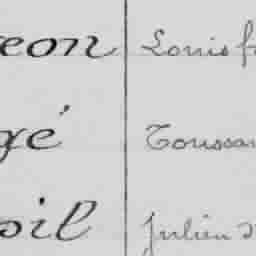 eon Louis f
gé Toussa
oil Julien